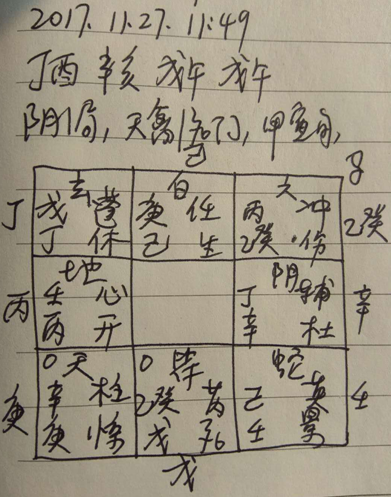 2017.11.27. 11:49
丁酉 辛亥 戊午 戊午
阴1局, 天禽 死门, 甲寅旬,
己
丁 玄 白 六 乙癸
戊 蓬 庚 任 丙 冲
丁 休 己 生 乙癸 伤
地 阴
丙 壬 心 丁 辅 辛
丙 开 辛 杜
O天 O 蛇
庚 辛 柱 乙癸 芮 己 英 壬
庚 惊 戊 死 壬 景
戊